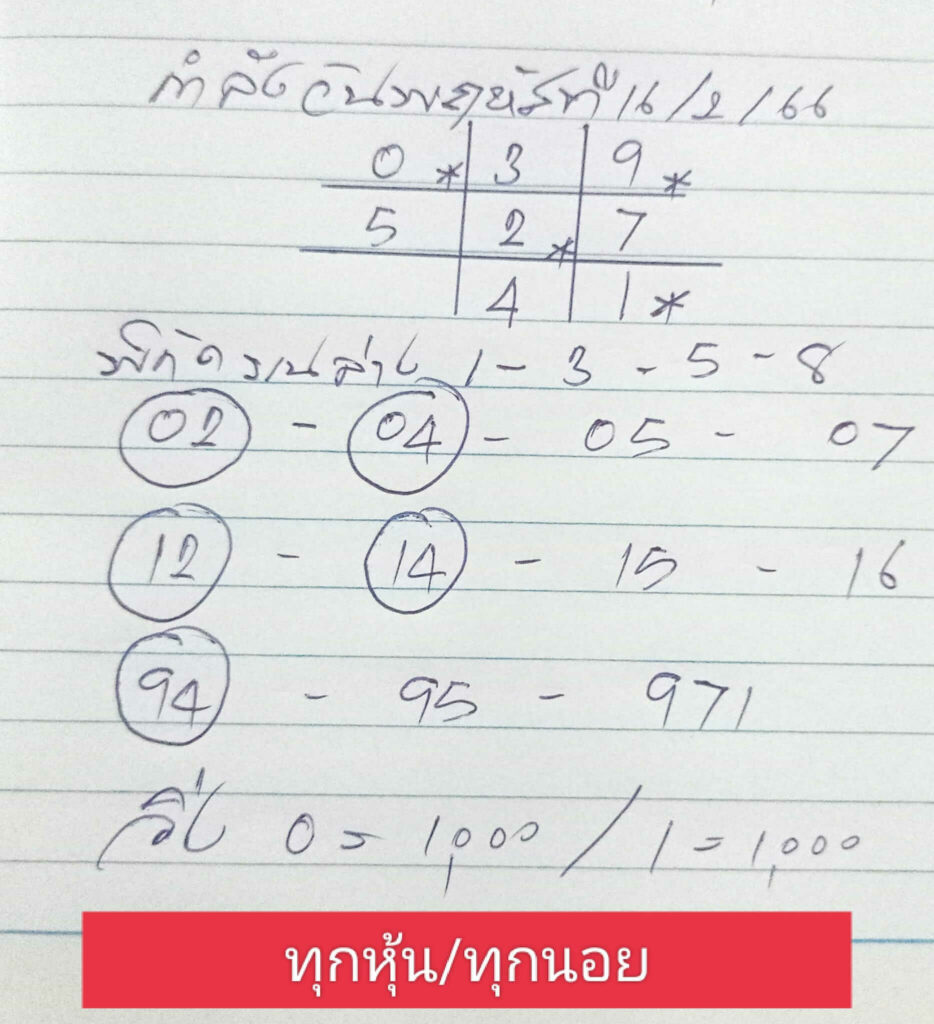 กำลังวันพฤหัสที่ 16/2/66
0 * 3 9 *
5 2 * 7
4 1 *
พิกัด บนล่าง 1 - 3 - 5 - 8
02 - 04 - 05 - 07
12 - 14 - 15 - 16
94 - 95 - 971
วิ่ง 0 = 1,000 / 1 = 1,000
ทุกหุ้น/ทุกนอย